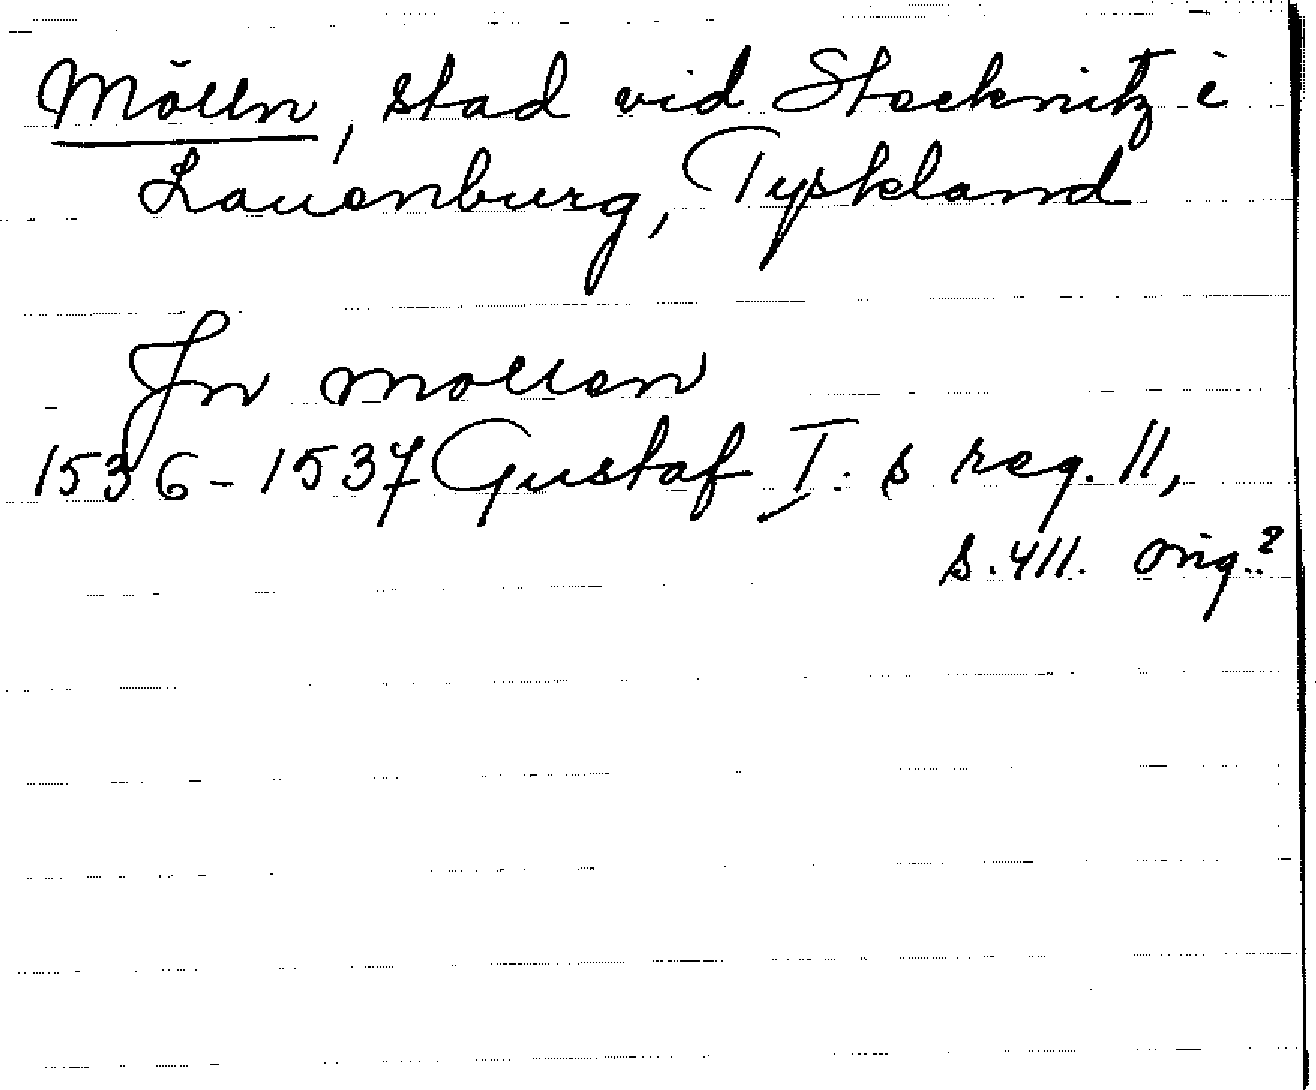 Mölln, stad vid Stecknitz i
Lauenburg, Tyskland
Jn mollen
1536-1537 Gustaf I.s reg. 11,
s. 411. Orig.?